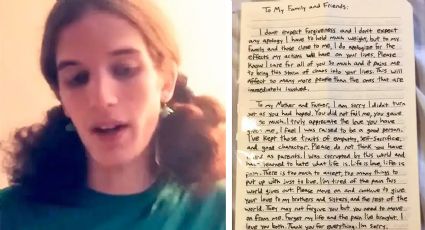 To My Family and Friends:
I don't expect forgiveness and I don't
expect any apology I have to hold
much weight, but to my
family and those close to me, I do apologize for the
effects my actions will have on your lives. Please
know I care for all of you so much and it pains me
to bring this storm of chaos into your lives. This will
affect so many more people than the ones that are
immediately involved.
To my Mother and Father, I am sorry I didn't turn
out as you had hoped. You did not fail me, you gave
so much. I truly appreciate the love you have
given me, I feel I was raised to be a good person.
I've kept those traits of empathy, self-sacrifice,
and good character. Please do not think you have
failed as parents. I was corrupted by this world and
learned to hate what life is. Life is love, life is
pain. There is too much to accept, too many things to
put up with just to live. I'm tired of the pain this
world gives out. Please move on and continue to give
your love to my brothers and sisters, and the rest of the
world. They may not forgive you but you need to move
on from me. Forget my life and the pain I've brought. I
love you both. Thank you for everything. I'm sorry.